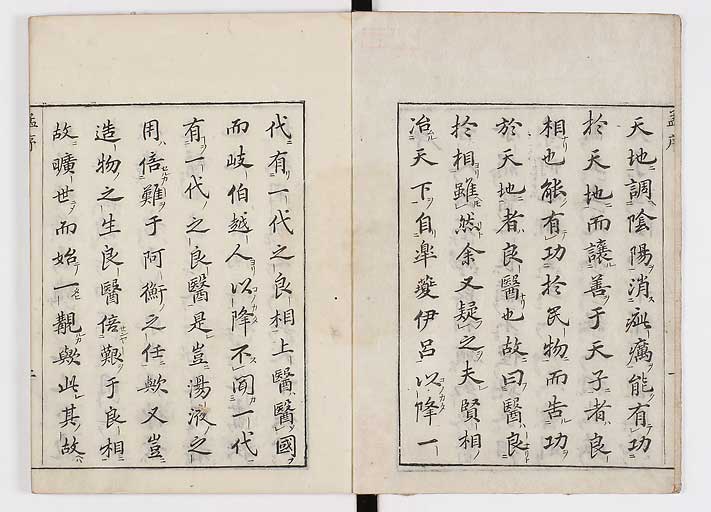 天地調陰陽消疵癘能有功
於天地而讓善于天子者良
相也能有功於民物而告功
於天地者良醫也故曰醫良
於相雖然余又疑之夫賢相
冶天下自皐夔伊呂以降一
代有一代之良相上醫醫國
而岐伯越人以降不聞一代
有一代之良醫是豈湯液之
用倍難于阿衡之任歟又豈
造物之生良醫倍艱于良相
故曠世而始一覯歟此其故